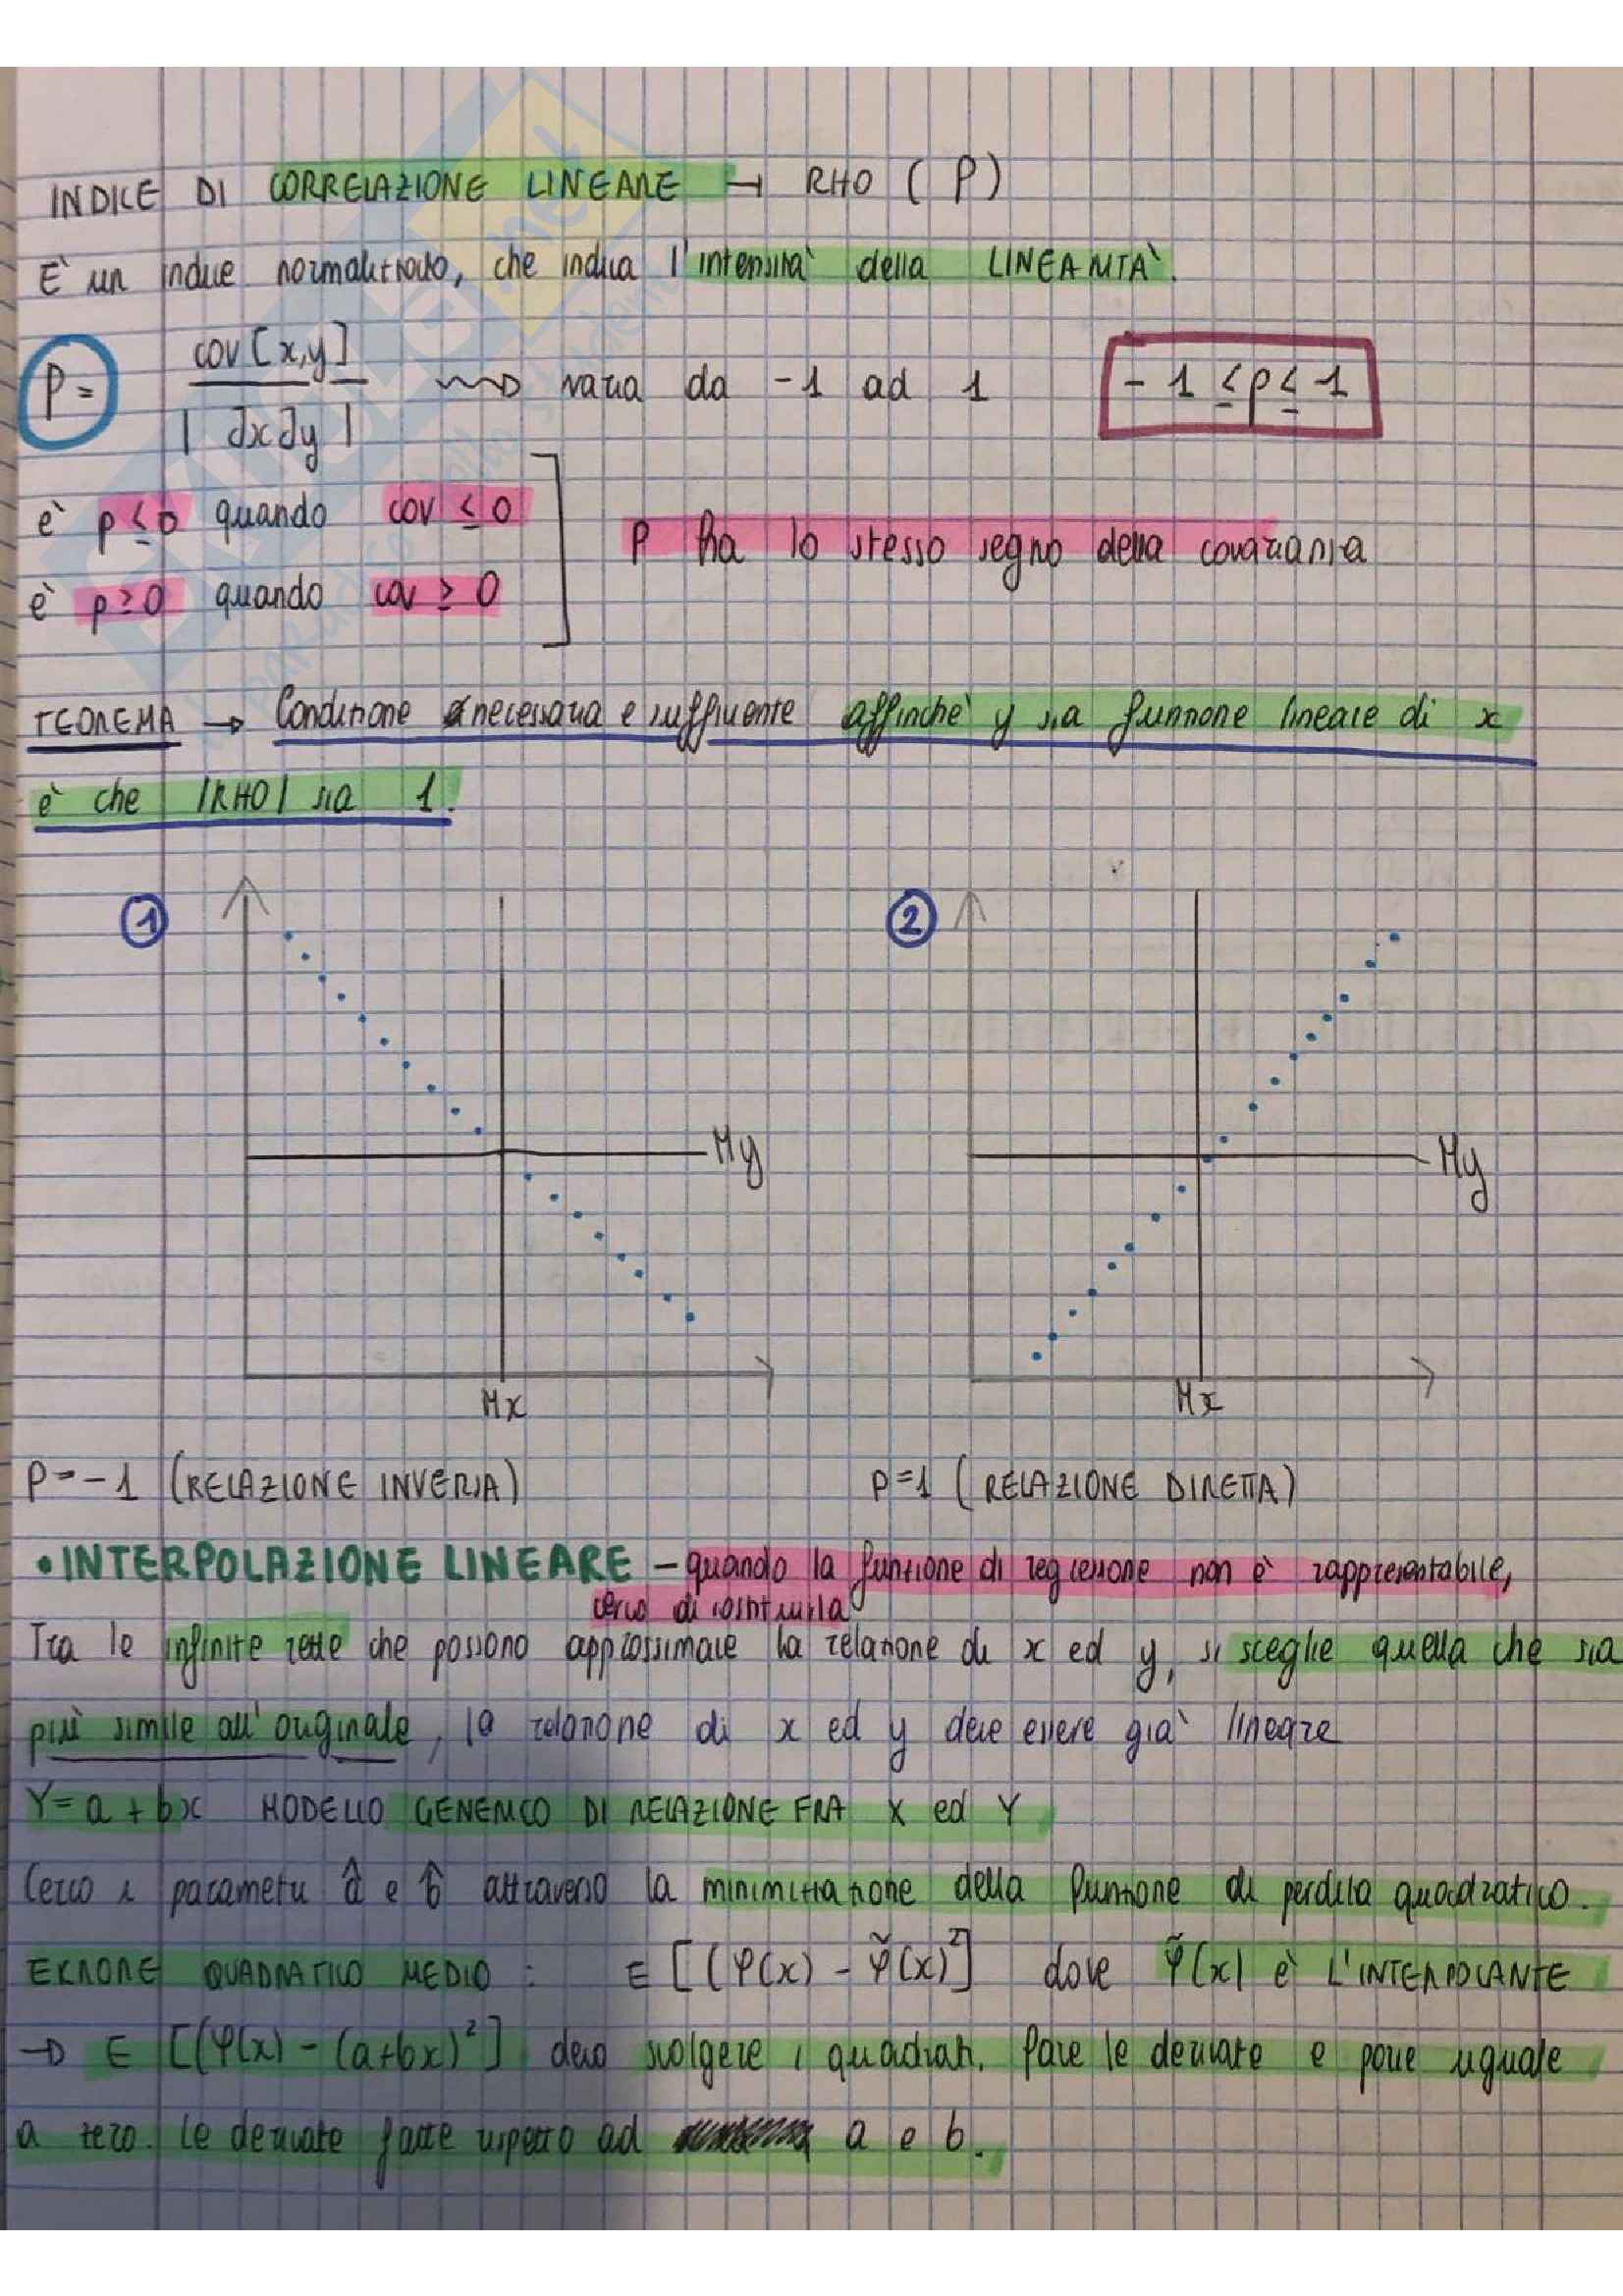 INDICE DI CORRELAZIONE LINEARE → RHO (ρ)
È un indice normalizzato, che indica l'intensità della LINEARITÀ.
ρ = cov[x,y] / |σxσy| ⟿ varia da -1 ad 1 -1 ≤ ρ ≤ 1
è ρ ≤ 0 quando cov ≤ 0
ρ ha lo stesso segno della covarianza
è ρ ≥ 0 quando cov ≥ 0
TEOREMA → Condizione necessaria e sufficiente affinchè y sia funzione lineare di x
è che |RHO| sia 1.
1 2
My My
Mx Mx
ρ = -1 (RELAZIONE INVERSA) ρ = 1 (RELAZIONE DIRETTA)
• INTERPOLAZIONE LINEARE - quando la funzione di regressione non è rappresentabile,
cerco di costruirla
Tra le infinite rette che possono approssimare la relazione di x ed y, si sceglie quella che sia
più simile all'originale, la relazione di x ed y deve essere già lineare
Y = a + bx MODELLO GENERICO DI RELAZIONE FRA X ed Y
Cerco i parametri â e b̂ attraverso la minimizzazione della funzione di perdita quadratico.
ERRORE QUADRATICO MEDIO : E [(φ(x) - φ̌(x)²] dove φ̌(x) è L'INTERPOLANTE
→ E [(φ(x) - (a+bx)²] devo svolgere i quadrati. fare le derivate e porre uguale
a zero. le derivate fatte rispetto ad a e b.